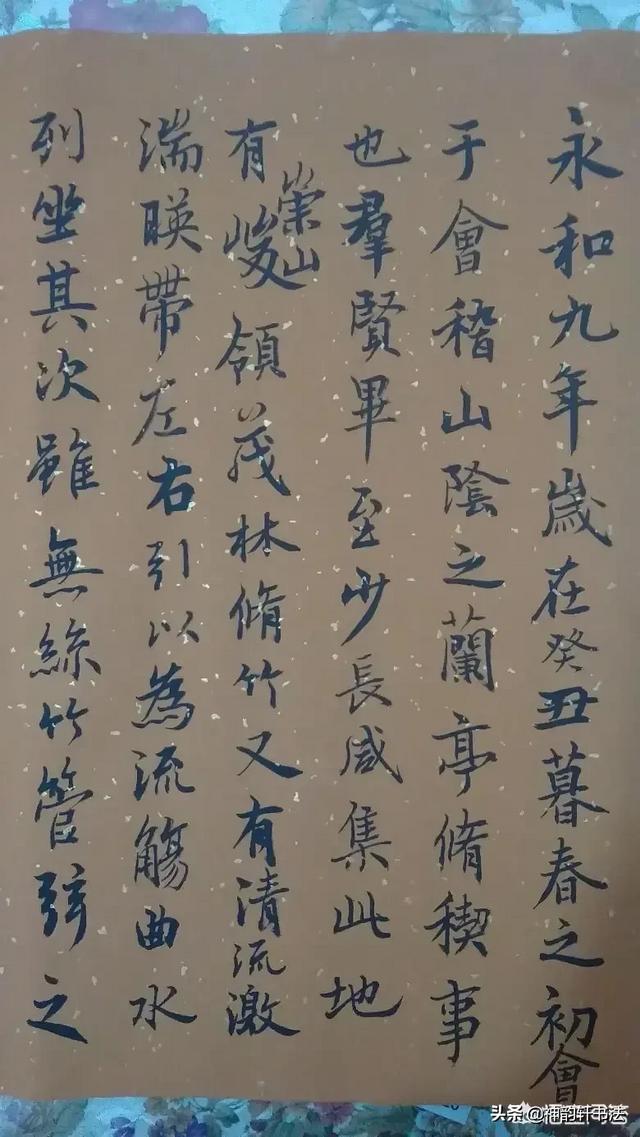 永和九年歲在癸丑暮春之初會
于會稽山陰之蘭亭脩稧事
也羣賢畢至少長咸集此地
有崇山峻領茂林脩竹又有清流激
湍暎帶左右引以為流觴曲水
列坐其次雖無絲竹管弦之
头条 @裡韵轩书法